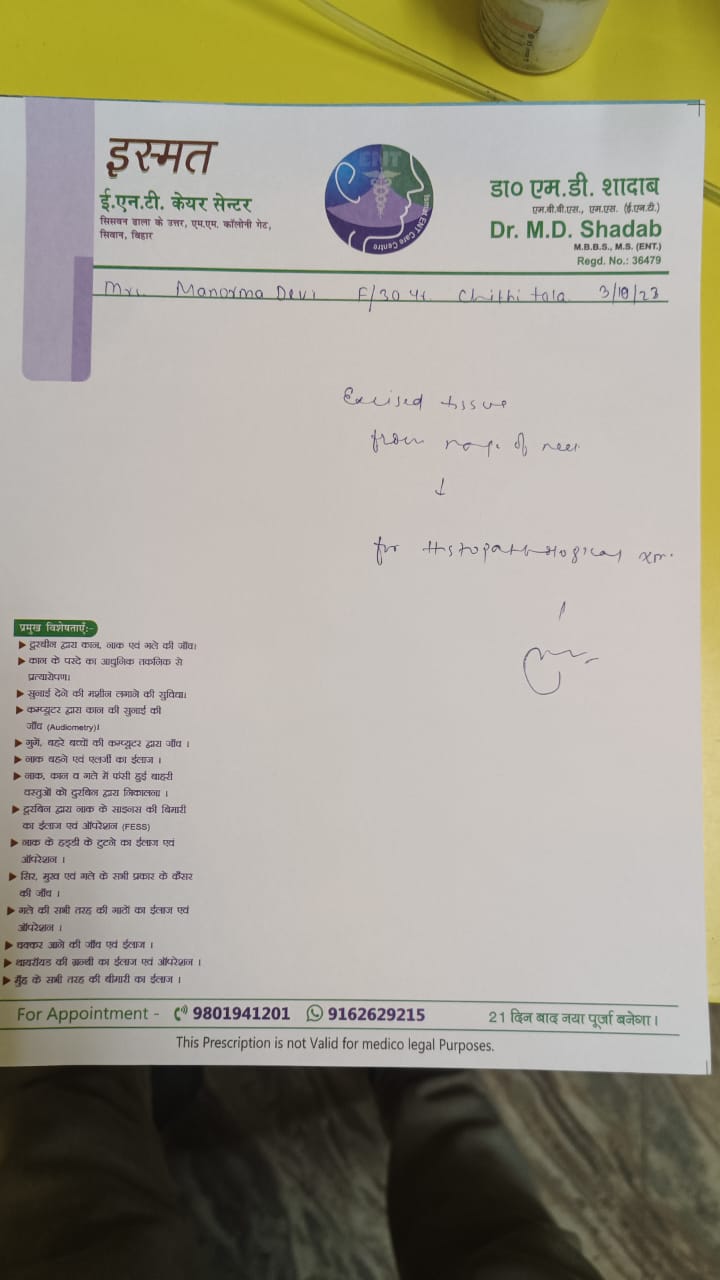 इस्मत
ई.एन.टी. केयर सेन्टर
सिसवन ढाला के उत्तर, एम.एम. कॉलोनी गेट,
सिवान, बिहार
ENT
Ismat ENT Care Centre
डा० एम.डी. शादाब
एम.बी.बी.एस., एम.एस. (ई.एन.टी.)
Dr. M.D. Shadab
M.B.B.S., M.S. (ENT.)
Regd. No.: 36479
Mrs. Manorma Devi F/30 yr. 3/10/23
Excised tissue
from of
↓
for Histopathological
प्रमुख विशेषताएँ:-
दूरबीन द्वारा कान, नाक एवं गले की जाँच।
कान के परदे का आधुनिक तकनिक से
प्रत्यारोपण।
सुनाई देने की मशीन लगाने की सुविधा।
कम्प्यूटर द्वारा कान की सुनाई की
जाँच (Audiometry)।
गुमें, बहरे बच्चों की कम्प्यूटर द्वारा जाँच ।
नाक बहने एवं एलर्जी का ईलाज ।
नाक, कान व गले में फंसी हुई बाहरी
वस्तुओं को दुरबिन द्वारा निकालना ।
दूरबिन द्वारा नाक के साइनस की बिमारी
का ईलाज एवं ऑपरेशन (FESS)
नाक के हड्डी के टुटने का ईलाज एवं
ऑपरेशन ।
सिर, मुख एवं गले के सभी प्रकार के कैंसर
की जाँच ।
गले की सभी तरह की गाठों का ईलाज एवं
ऑपरेशन ।
चक्कर आने की जाँच एवं ईलाज ।
थायरॉयड की ग्रन्थी का ईलाज एवं ऑपरेशन ।
मुँह के सभी तरह की बीमारी का ईलाज ।
For Appointment - 9801941201 9162629215
21 दिन बाद नया पूर्जा बनेगा।
This Prescription is not Valid for medico legal Purposes.